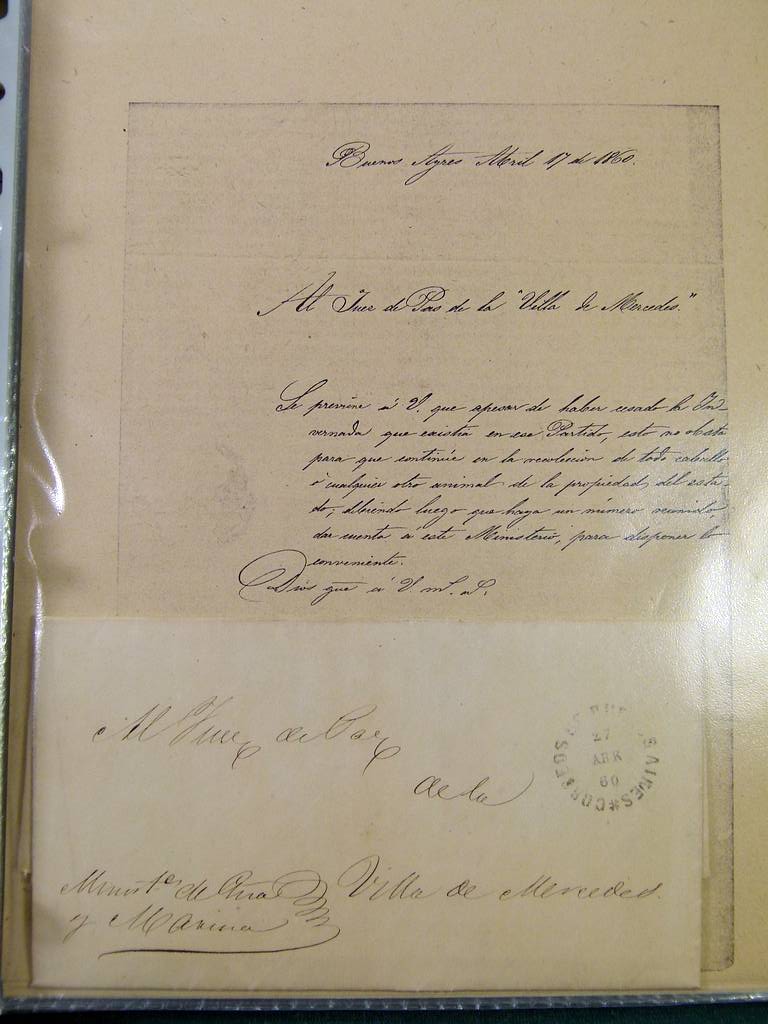 Buenos Ayres Abril 17 de 1860.
Al Juez de Pas de la "Villa de Mercedes."
Se previene á V. que apesar de haber cesado la In-
vernada que existia en ese Partido, esto no obsta
para que continúe en la recoleccion de todo caballo
ó cualquier otro animal de la propiedad del esta-
do, debiendo luego que haya un número reunido,
dar cuenta á este Ministerio, para disponer lo
conveniente.
Dios gue á V. ms. as.
Al Juez de Paz
de la
Villa de Mercedes.
Ministo. de Grra
y Marina
CORREOS DE BUENOS AIRES
27
ABR
60